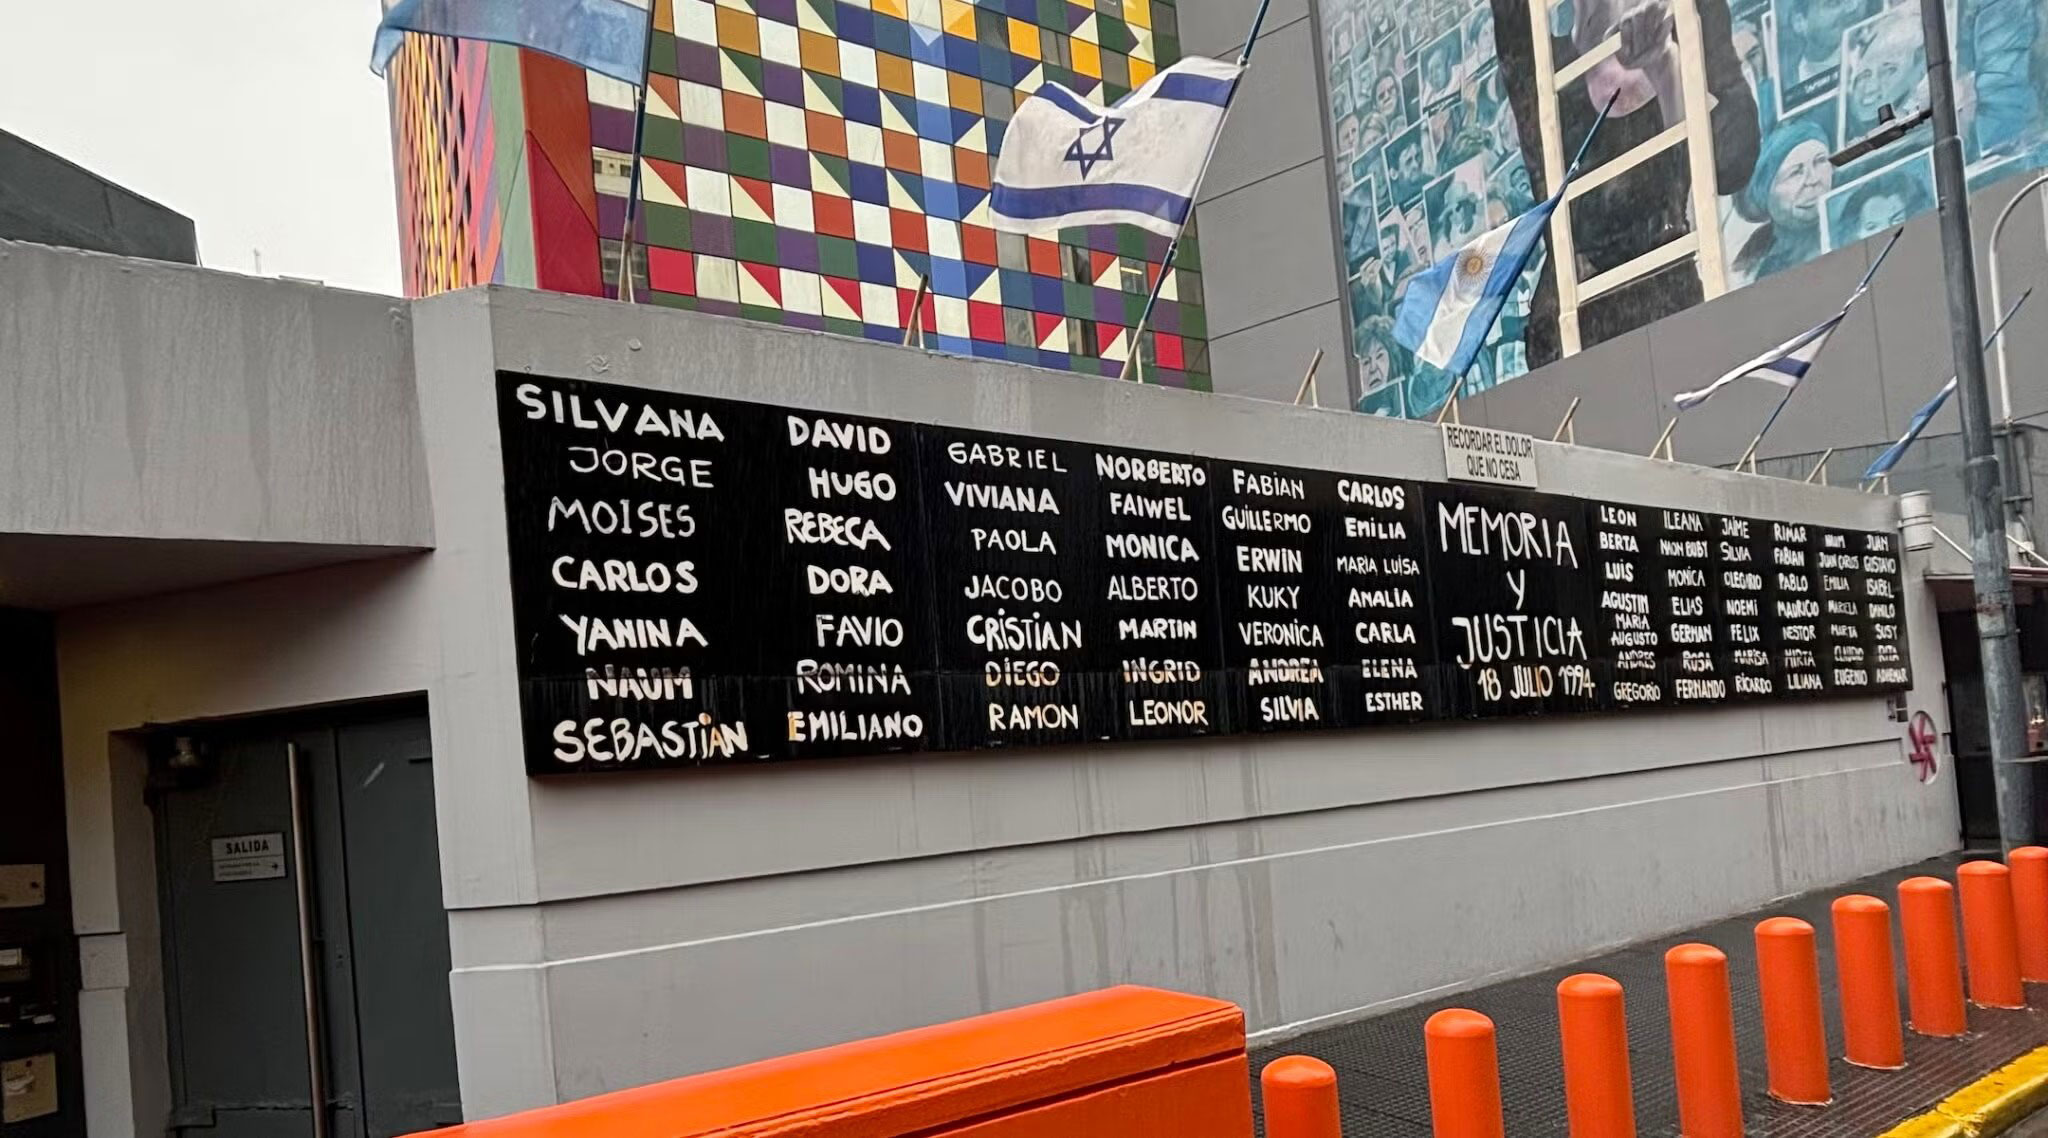 SILVANA
JORGE
MOISES
CARLOS
YANINA
NAUM
SEBASTIÁN
DAVID
HUGO
REBECA
DORA
FAVIO
ROMINA
EMILIANO
GABRIEL
VIVIANA
PAOLA
JACOBO
CRISTIAN
DIEGO
RAMON
NORBERTO
FAIWEL
MONICA
ALBERTO
MARTIN
INGRID
LEONOR
FABIAN
GUILLERMO
ERWIN
KUKY
VERONICA
ANDREA
SILVIA
CARLOS
EMILIA
MARIA LUISA
ANALIA
CARLA
ELENA
ESTHER
RECORDAR EL DOLOR
QUE NO CESA
MEMORIA
Y
JUSTICIA
18 JULIO 1994
LEON
BERTA
LUIS
AGUSTIN
MARIA
AUGUSTO
ANDRES
GREGORIO
ILEANA
MONICA
ELIAS
GERMAN
ROSA
FERNANDO
JAIME
SILVIA
OLEGARIO
NOEMI
FELIX
MARISA
RICARDO
RIMAR
FABIAN
PABLO
MAURICIO
NESTOR
MIRTA
LILIANA
NAUM
JUAN CARLOS
EMILIA
MARIELA
MARTA
CLAUDIO
EUGENIO
JUAN
GUSTAVO
ISABEL
DANILO
SUSY
RITA
ADHEMAR
SALIDA